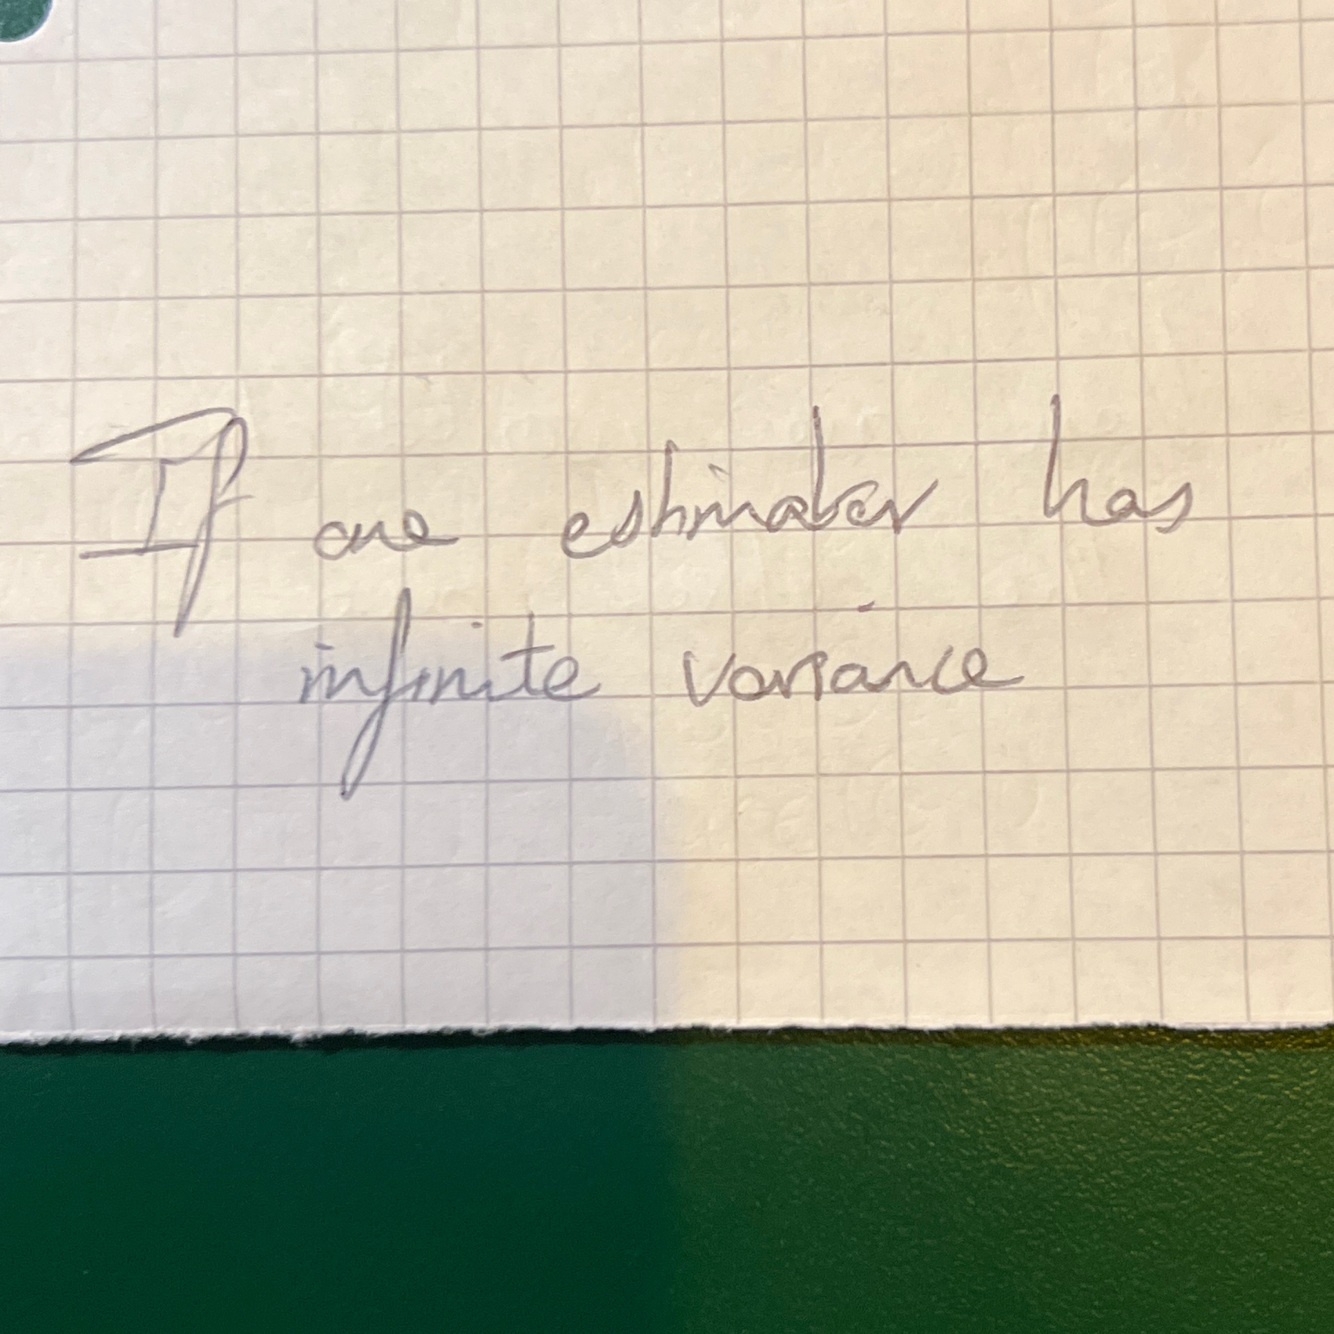 If one estimator has
infinite variance